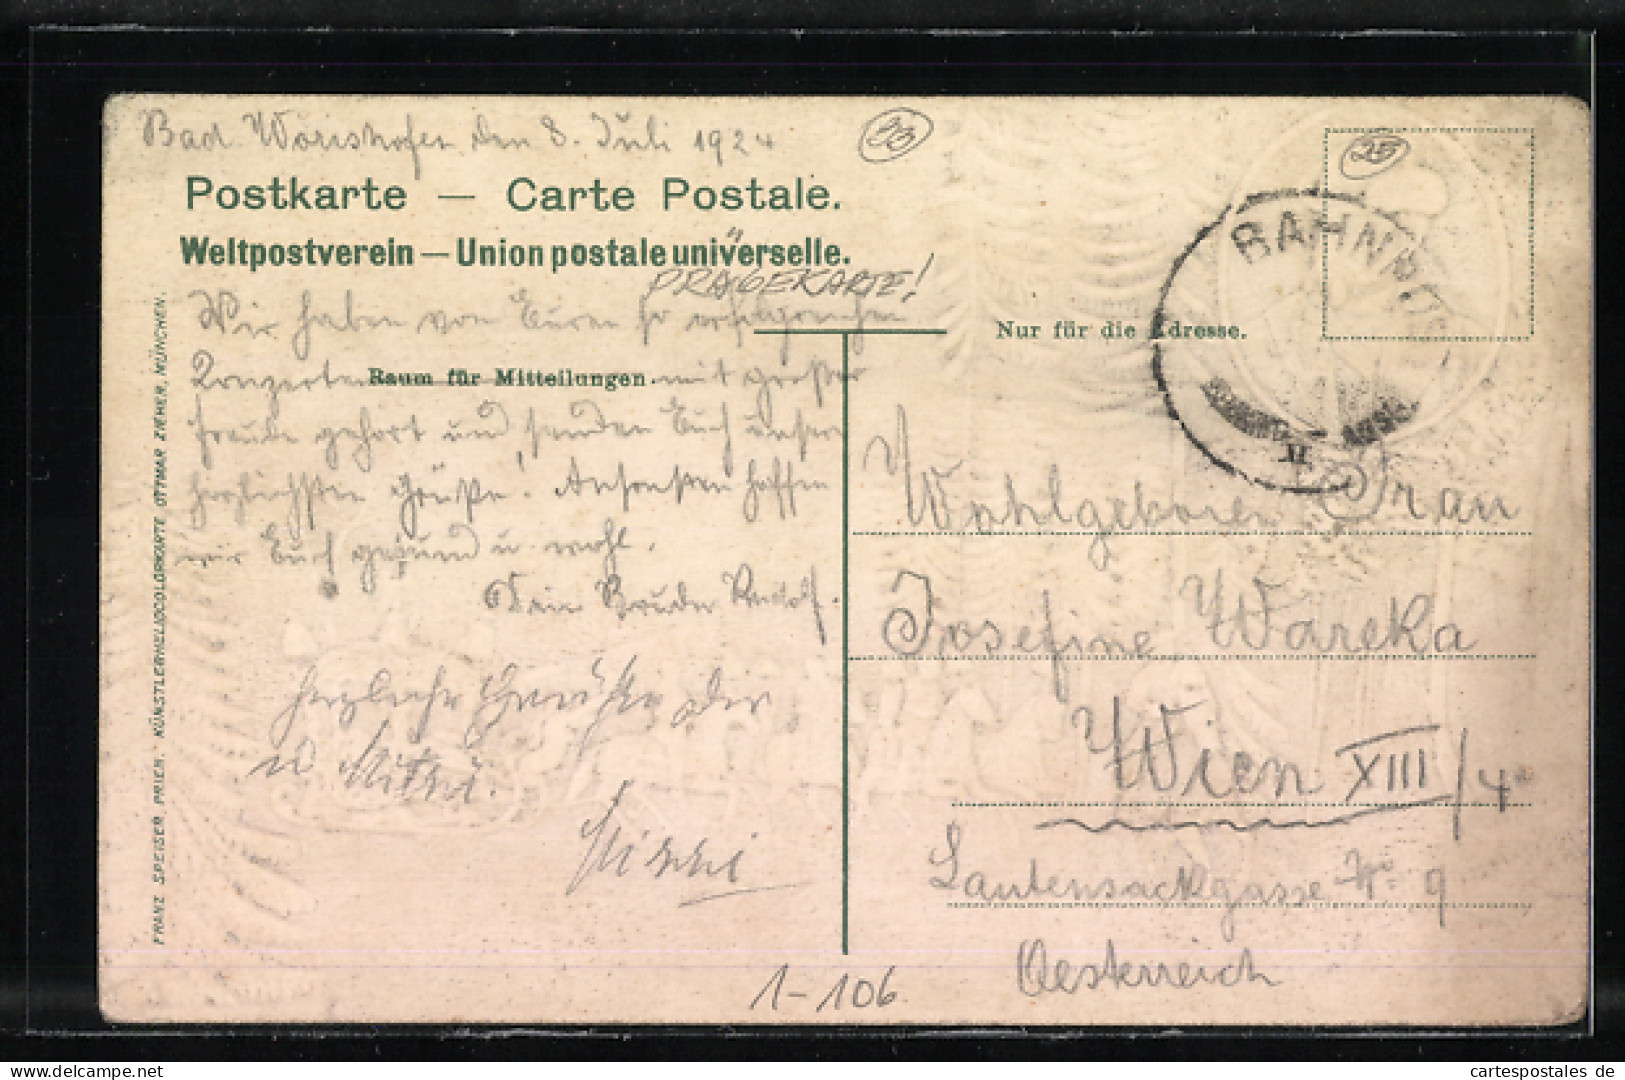 Bad Wörishofen den 8. Juli 1924
33
25
Postkarte — Carte Postale.
Weltpostverein — Union postale universelle.
PRÄGEKARTE!
BAHNPOST
Wir haben von Euren so erfolgreichen
Nur für die Adresse.
Konzerten mit großer
Raum für Mitteilungen.
Freude gehört und senden Euch unsere
herzlichsten Grüße! Ansonsten hoffen
wir Euch gesund u. wohl.
Dein Bruder Rudolf.
Herzliche Grüße Dir
u.
Minni
Wohlgeboren Frau
Josefine Wareka
Wien XIII/4
Lautensackgasse No. 9
Oesterreich
1-106
FRANZ SPEISER, PRIEN. KÜNSTLERHELIOCOLORKARTE OTTMAR ZIEHER, MÜNCHEN.
cartespostales de